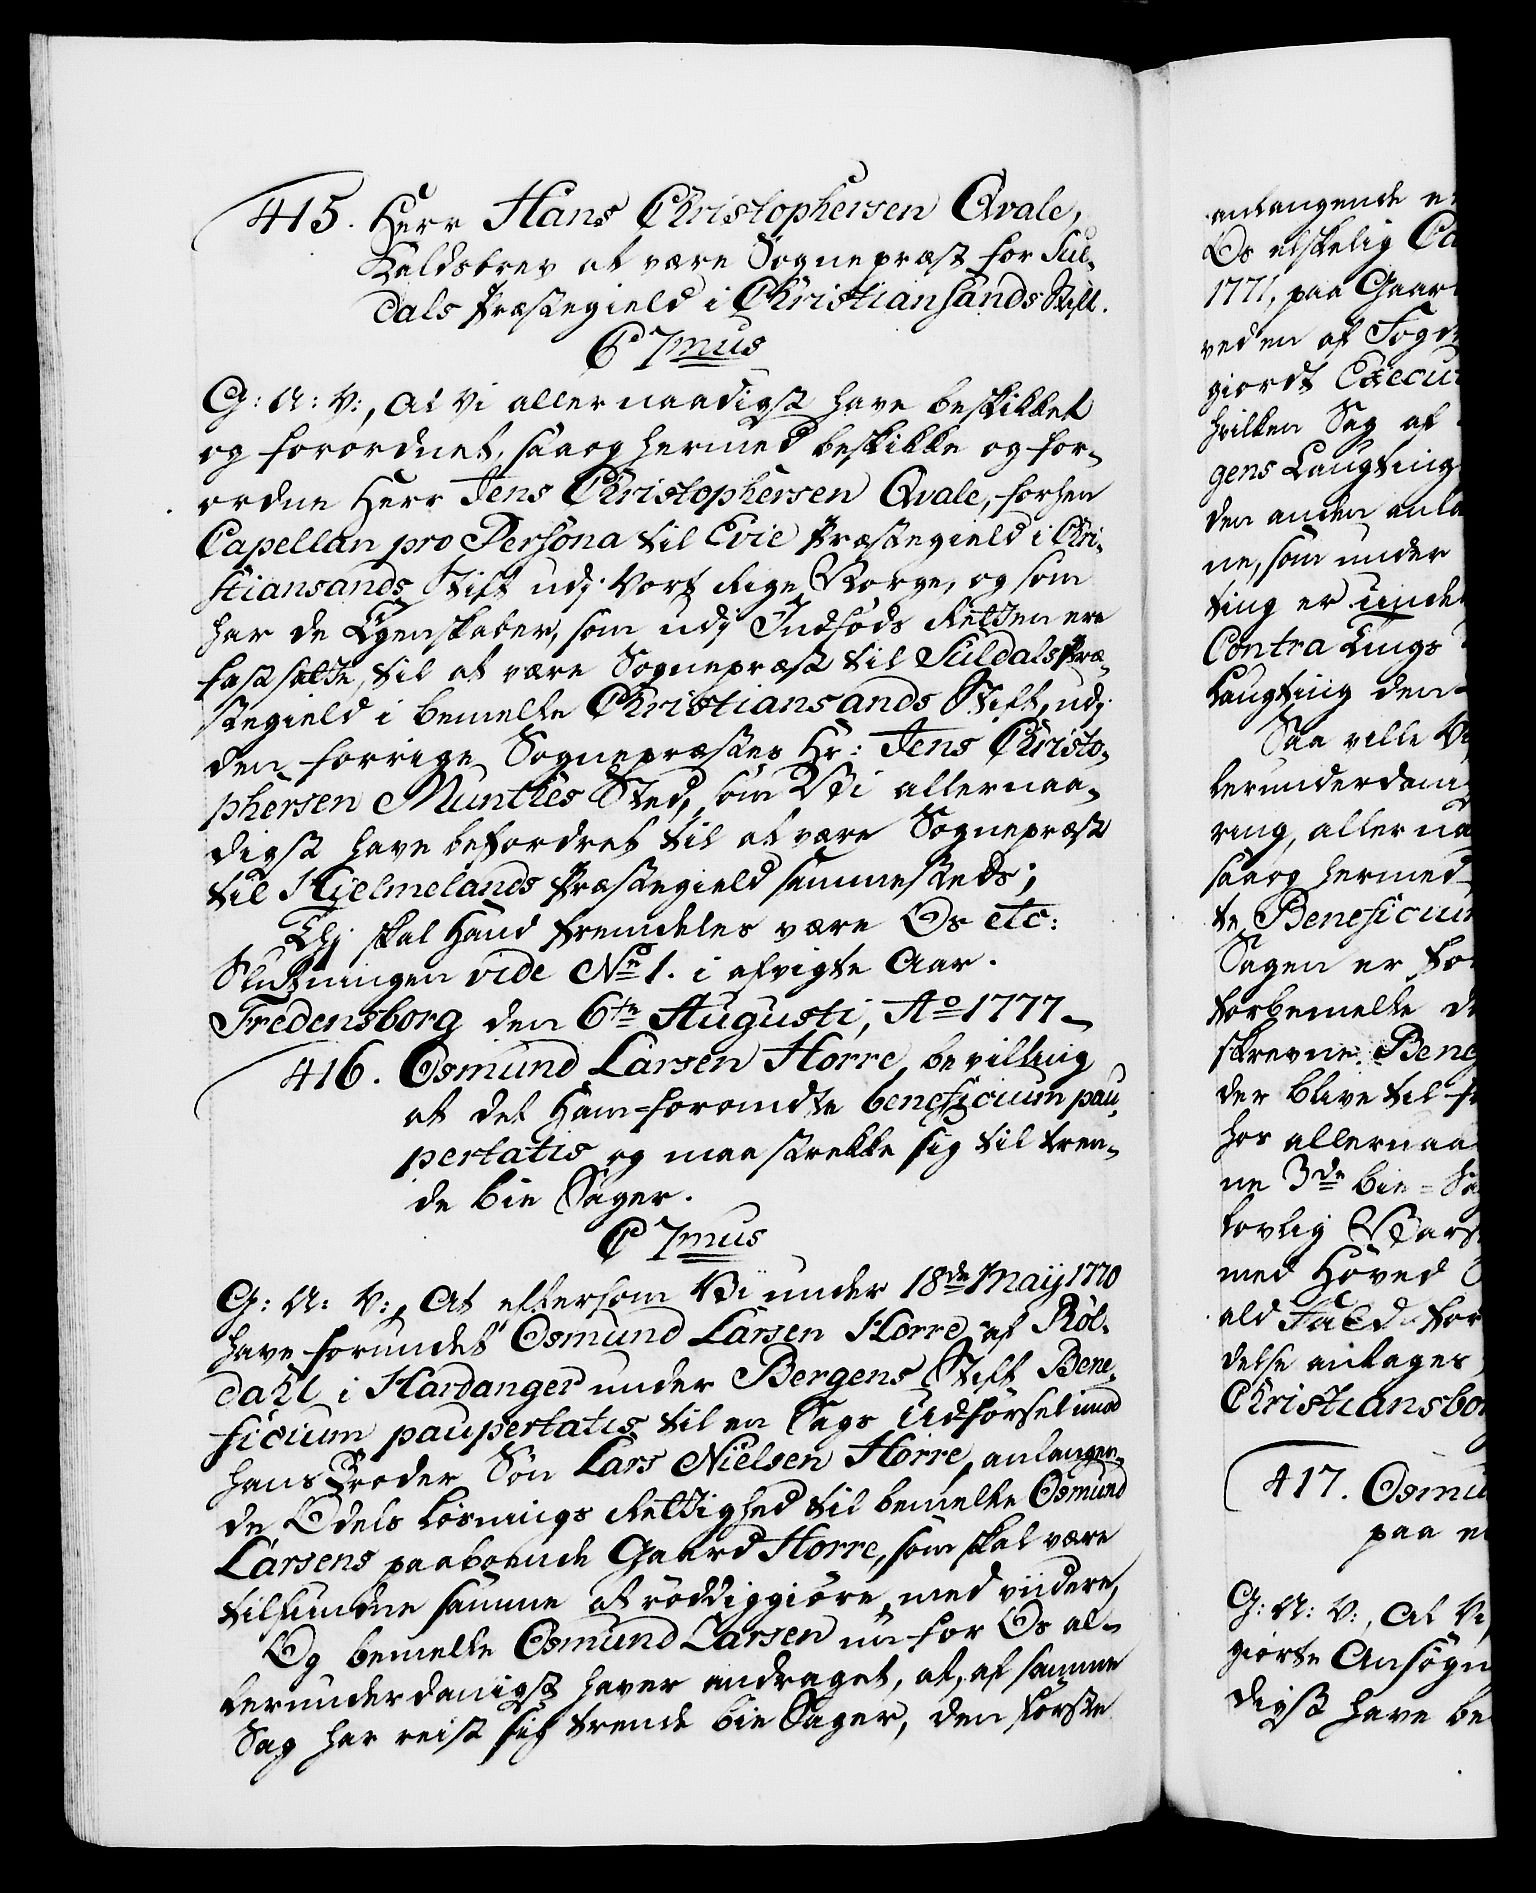 415. Herr Hans Christophersen Qvale,
Kaldsbrev at være Sognepræst for Sul-
dals Præstegield i Christiansands Stift.
C 7mus
G: A: V:, At Vi allernaadigst have beskikket
og forordnet, saa og hermed beskikke og for-
ordne Herr Jens Christophersen Qvale, forhen
Capellan pro Persona til Evie Præstegield i Chri-
stiansands Stift udj Vort Rige Norge, og som
har de Egenskaber, som udj Indføds Retten ere
fastsatte, til at være Sognepræst til Suldals Præ-
stegield i bemelte Christiansands Stift, udj
den forrige Sognepræstes Hr: Jens Christo-
phersen Munthes Sted, som Vi allernaa-
digst have befordret til at være Sognepræst
til Hjelmelands Præstegield sammesteds;
Thj skal Hand fremdeles være Os etc:
Slutningen vide No 1. i afvigte Aar.
Fredensborg den 6te Augusti, Ao 1777
416. Osmund Larsen Horre, bevilling
at det Ham forundte beneficium pau-
pertatis og maa strekke sig til tren-
de bie Sager.
C 7mus
G: A: V:, At eftersom Vi under 18de Maij 1770
have forundet Osmund Larsen Horre af Røl-
dahl i Hardanger under Bergens Stift Bene-
ficium paupertatis til en Sags Udførsel imod
hans Broder Søn Lars Nielsen Horre, anlangen-
de Odels Løsnings Rettighed til bemelte Osmund
Larsens paaboende Gaard Horre, som skal være
tilfunden samme at røddiggiøre, med viidere,
Og bemelte Osmund Larsen nu for Os al-
lerunderdanigst haver andraget, at, af samme
Sag har reist sig trende bie Sager, den første
anlangende
Os elskelig
1771, paa Gaar
ved en af Fogd
giordt Execu
hvilken Sag af
gens Laugting
den anden anla
ne, som under
ting er unde
Contra Lings
Laugting den
Saa ville Vi
lerunderdani
ring, allerna
saa og hermed
te Beneficium
Sagen er for
forbemelte
skrevne Bene
der blive til
hos allernaa
ne 3de bie-Sa
lovlig Vars
med Hoved
ald Fald for
delse antages
Christiansbo
417. Osmu
paa
G: A: V:, At Vi
giorte Ansøgn
digst have be